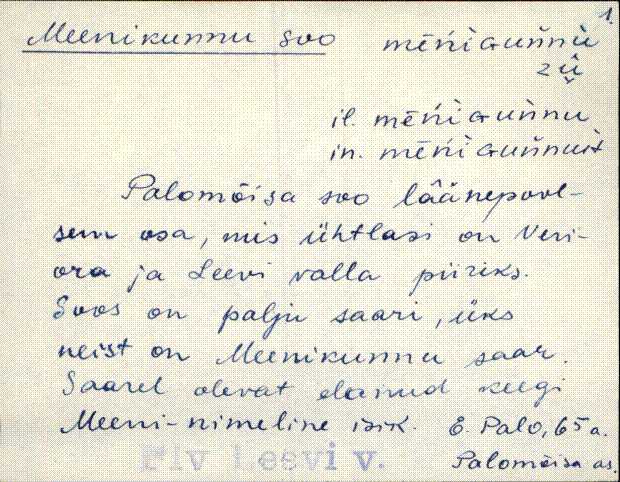 1.
Meenikunnu soo mēńiGuňnu
zū̬
il. mēńiGuňnu
in. mēńiGuňnust
Palomõisa soo läänepool-
sem osa, mis ühtlasi on Veri-
ora ja Leevi valla piiriks.
Soos on palju saari, üks
neist on Meenikunnu saar.
Saarel olevat elanud keegi
Meeni-nimeline isik. E. Palo, 65 a.
Leevi v. Palomõisa as.